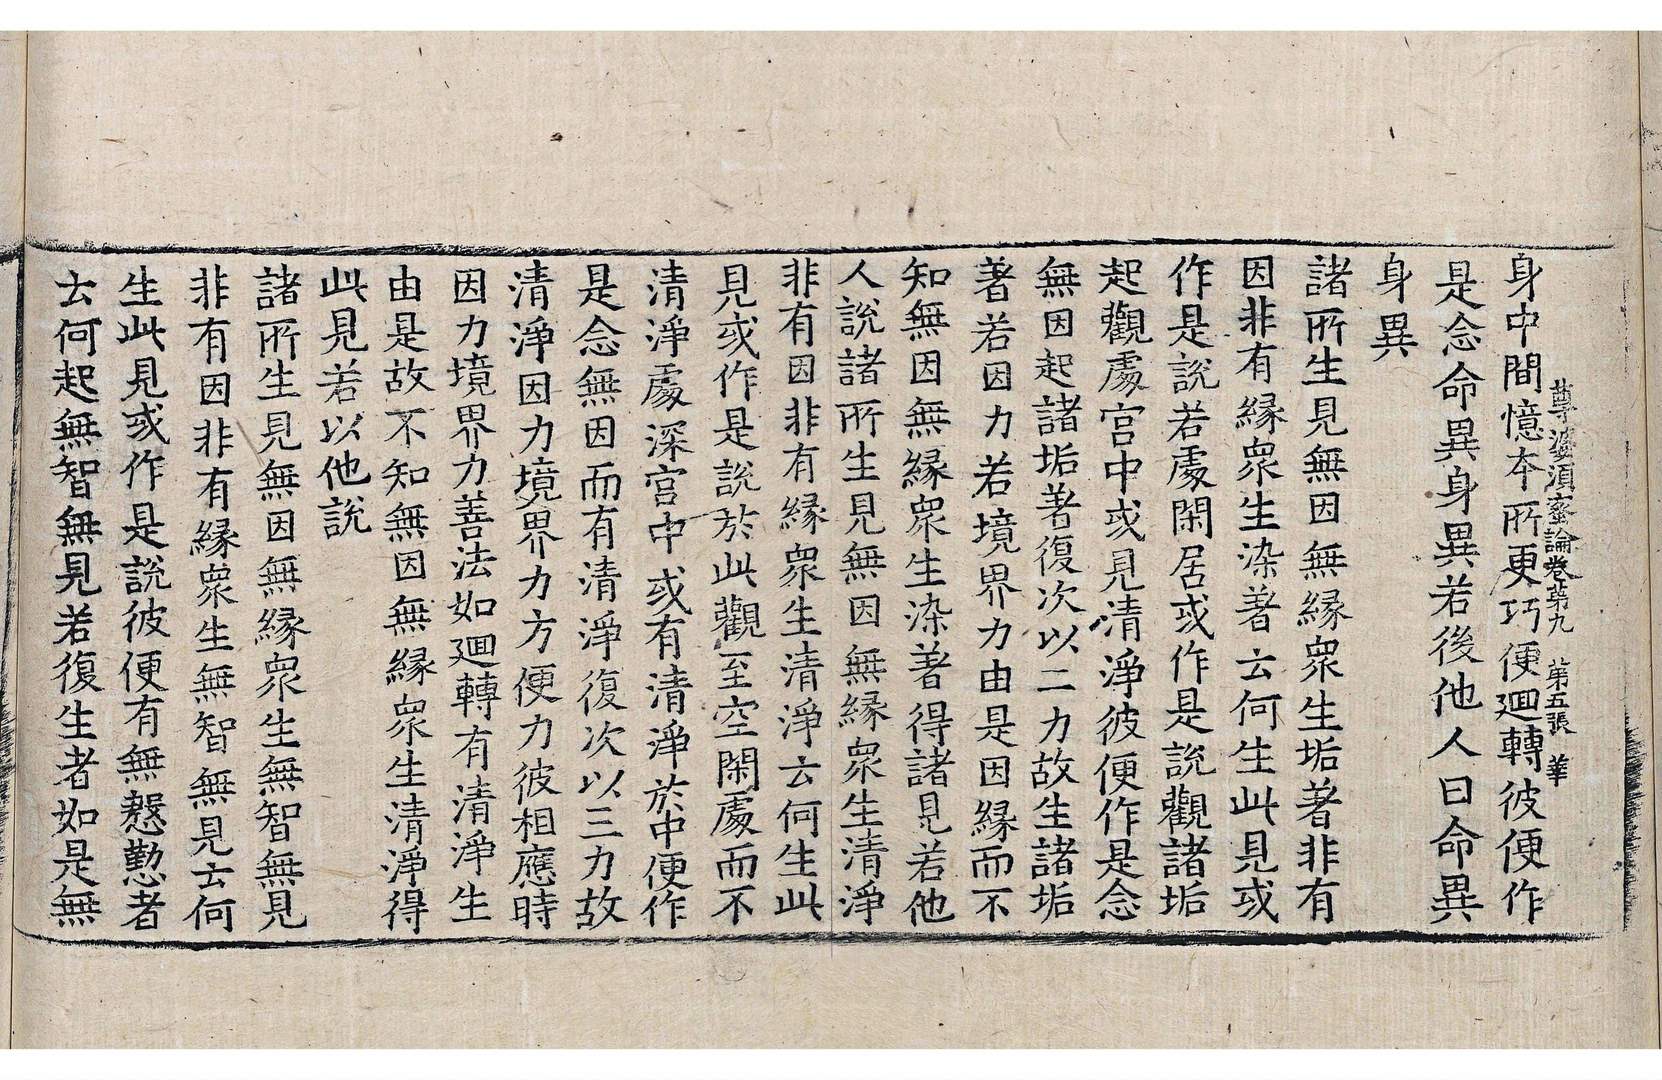 尊婆須蜜論卷苐九 苐五張 華
身中間憶本所更巧便迴轉彼便作
是念命異身異若後他人曰命異
身異
諸所生見無因無緣衆生垢著非有
因非有緣衆生染著云何生此見或
作是說若處閑居或作是說觀諸垢
起觀處宮中或見清淨彼便作是念
無因起諸垢著復次以二力故生諸垢
著若因力若境界力由是因緣而不
知無因無緣衆生染著得諸見若他
人說諸所生見無因無緣衆生清淨
非有因非有緣衆生清淨云何生此
見或作是說於此觀至空閑處而不
清淨處深宮中或有清淨於中便作
是念無因而有清淨復次以三力故
清淨因力境界力方便力彼相應時
因力境界力善法如迴轉有清淨生
由是故不知無因無緣衆生清淨得
此見若以他說
諸所生見無因無緣衆生無智無見
非有因非有緣衆生無智無見云何
生此見或作是說彼便有無慇懃者
云何起無智無見若復生者如是無